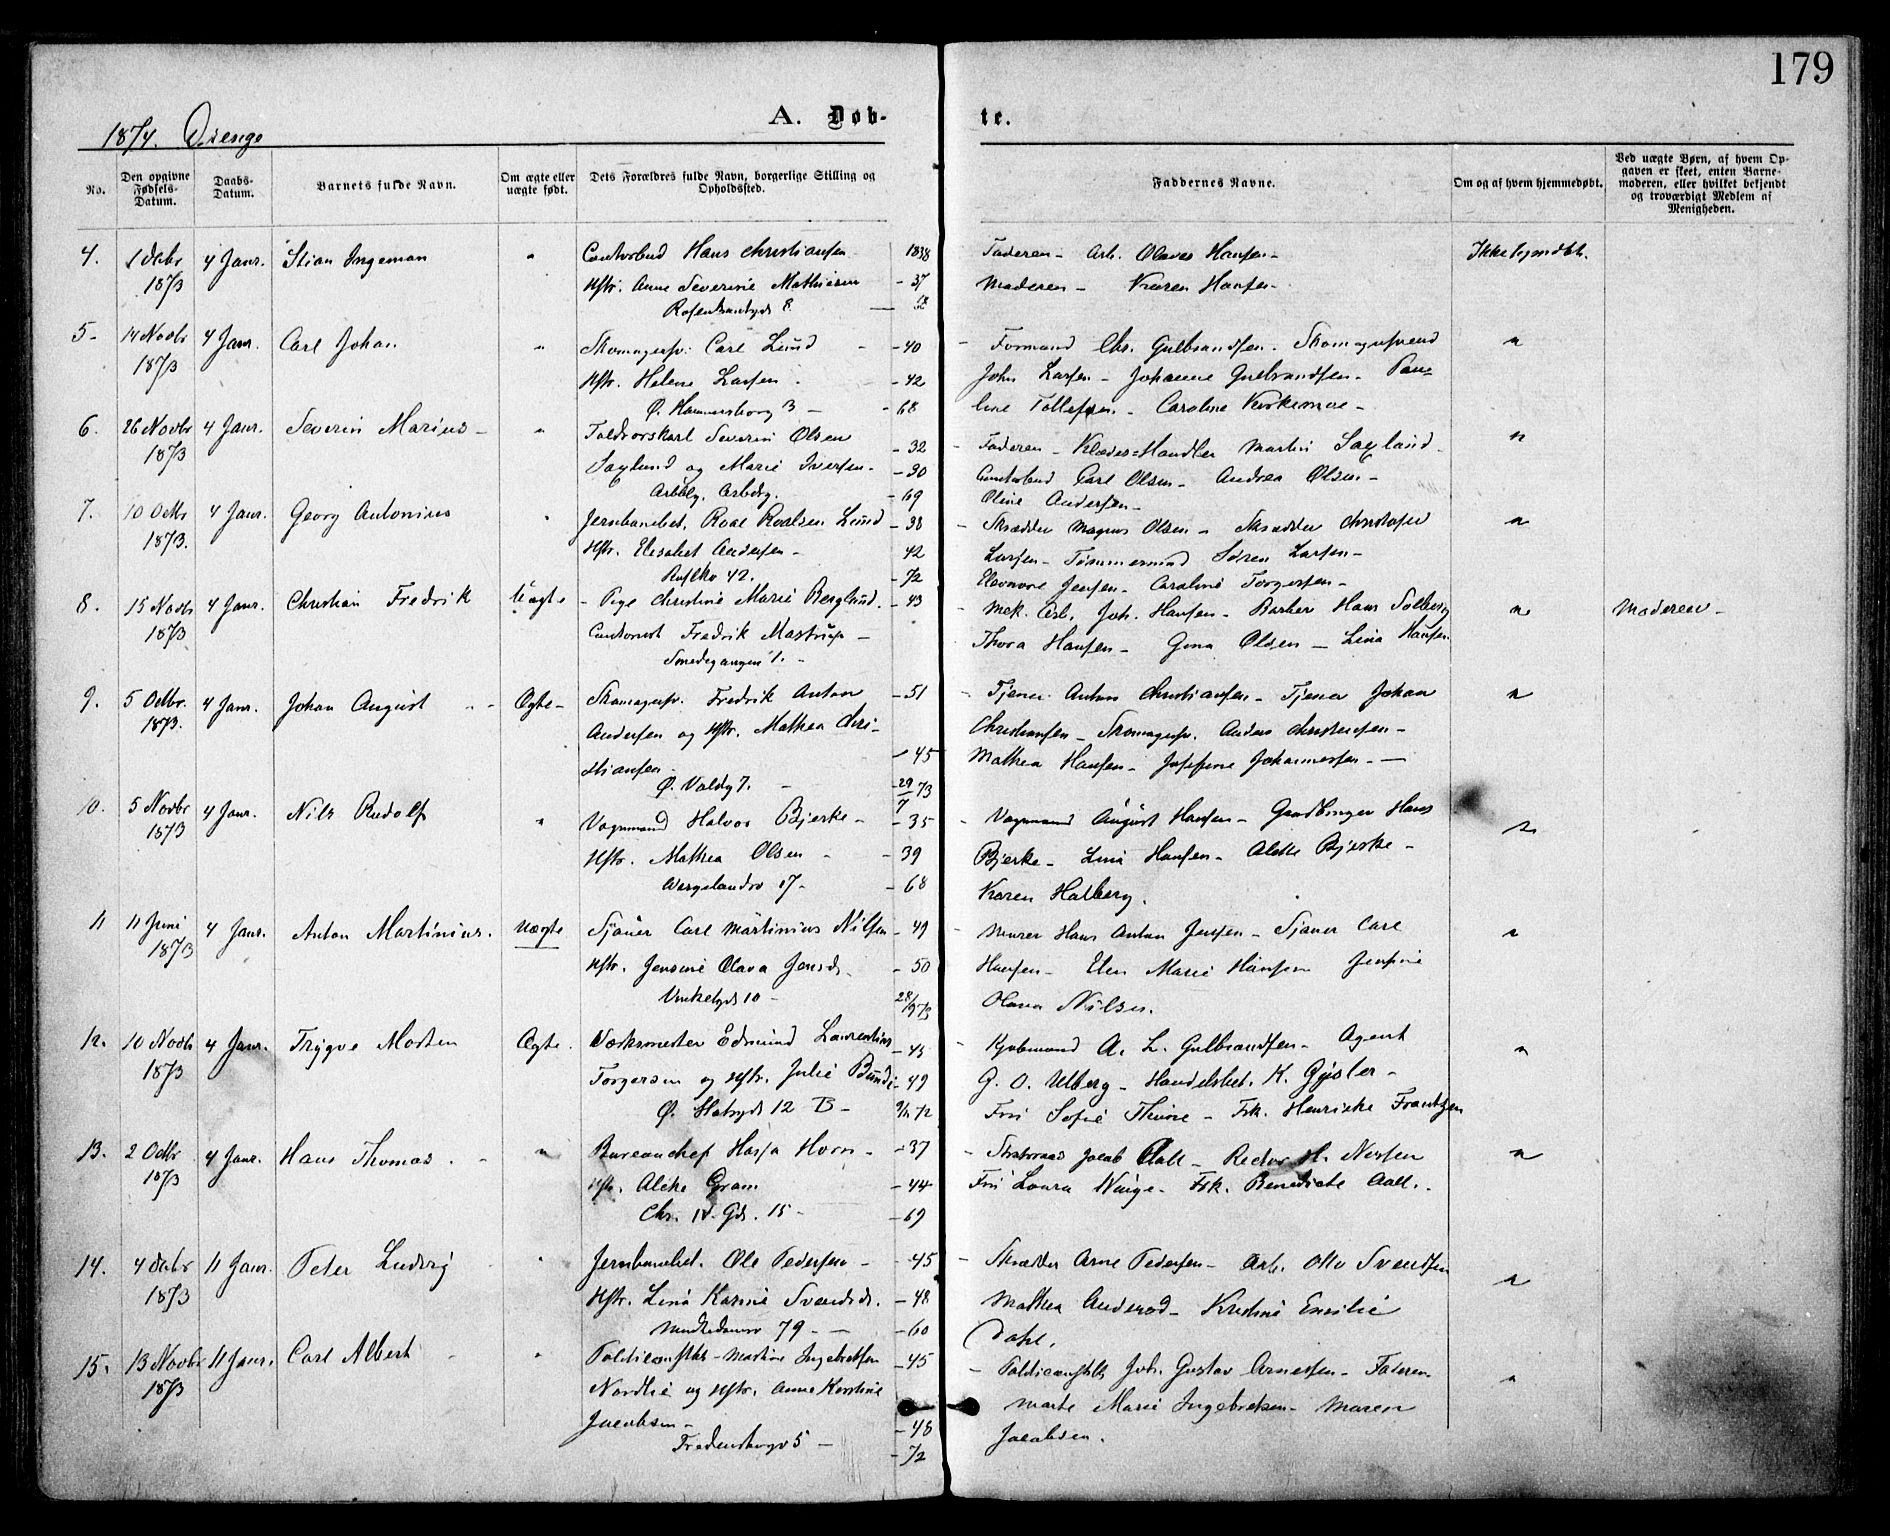 179
1874. Drenge
A. Døb-
te.
No.
Den opgivne Fødsels-Datum.
Daabs-Datum.
Barnets fulde Navn.
Om ægte eller uægte født.
Dets Forældres fulde Navn, borgerlige Stilling og Opholdssted.
Faddernes Navne.
Om og af hvem hjemmedøbt.
Ved uægte Børn, af hvem Opgaven er skeet, enten Barnemoderen, eller hvilket bekjendt og troværdigt Medlem af Menigheden.
4. 1 Decbr 4 Janr. Stian Ingeman " Contorbud Hans Christiansen 1838 Faderen - Arb. Olaves Hansen -
1873 Hstr. Anne Severine Mathisen - 37 Moderen - Karen Hansen -
8
5 - 14 Novbr 4 Janr. Carl Johan " Skomagersv. Carl Lund - 40 - Formand Chr. Gulbrandsen. Skomagersvend "
1873 Hstr. Helene Larsen - - 42 John Larsen - Johanne Gulbrandsen - Pau=
Ø. Hammersborg 3 - - 68 line Tollefsen - Caroline
6. 26 Novbr 4 Janr. Severin Marius - " Severin Olsen - 32 - Faderen - Klædes=Handler Martin Saxlund - "
1873 Saxlund og Marie Iversen - - 30 Contorbud Carl Olsen - Andrea Olsen -
- 69 Oline Andersen -
7. 10 Octbr 4 Janr. Georg Antonius " Jernbanebet. Roal Roalsen Lund - 38 - Skrædder Magnus Olsen - Skrædder Christofer "
1873. Hstr. Elisabet Andersen - - 42 Larsen - Tømmermand Søren Larsen -
42. - 72 Eleonore Jensen - Caroline Torgersen -
8. 15 Novbr 4 Janr. Christian Fredrik Uægte - Pige Christine Marie Berglund. - 43 - Mek. Arb. Joh. Hansen - Barber Hans Solberg " Moderen -
1873 Contorist Fredrik Mastrup - Thora Hansen - Gina Olsen - Lina Hansen.
Smedegangen 1. -
9. 5 Octbr. 4 Janr. Johan August - Ægte - Skomagersv. Fredrik Anton - 51 - Tjener Anton Christiansen - Tjener Johan "
1873. Andersen og Hstr. Mathea Chri- Christiansen - Skomagersv. Anders Christensen -
stiansen - 45 Mathea Hansen - Josefine Johannessen -
Ø. Voldg 7. - 29/7 73
10. 5 Novbr 4 Janr. Nils Rudolf " Vognmand Halvor Bjerke - - 35 - Vognmand August Hansen - Gaardbruger Hans "
1873 Hstr. Mathea Olsen - - 39 Bjerke - Lina Hansen - Alette Bjerke -
17 - - 68 Karen Halberg.
11 11 Juni 4 Janr. Anton Martinius. Uægte Sjouer Carl Martinius Nilsen - 49 - Murer Hans Anton Jensen - Sjouer Carl "
1873 Hstr. Jensine Olava Jensd. - 50 Hansen - Elen Marie Hansen
10 - 28/9 73 Olava Nilsen.
12. 10 Novbr 4 Janr. Trygve Morten Ægte. Værksmester Edmund Laurentius - 43 - Kjøbmand A. L. Gulbrandsen - Agent "
1873 Torgersen og Hstr. Julie Bunde - 49 G. O. Ulberg - Handelsbet. K. Gjisler -
12 B - 9/ 72 Fru Sofie Thune - Frk. Henrieke Frantzen
13. 2 Octbr 4 Janr. Hans Thomas. " Bureauchef Horn - - 37 - Jacob Aall - Rector H. Nissen "
1873 Hstr. Alette Gram - 44 Fru Laura Winge - Frk. Benedicte Aall.
Chr. IV. Gds. 15 - - 69
14. 4 Decbr 11 Janr. Peter Ludvig " Jernbanebet. Ole Pedersen - - 45 - Skrædder Arne Pedersen - Arb. Otto Svendsen "
1873 Hstr. Lina Karine Svendsd. - 48 Mathea Anderød - Kristine Emilie
79 - - 60 Dahl.
15. 13 Novbr 11 Janr. Carl Albert " Politiconstbl - Martin Ingebretsen - 45 - Politiconstbl Joh. Gustav Arnesen - Faderen "
1873 Nordlie og Hstr. Anne Kirstine Marte Marie Ingebretsen - Maren
Jacobsen - - 48 Jacobsen.
5 - - 72